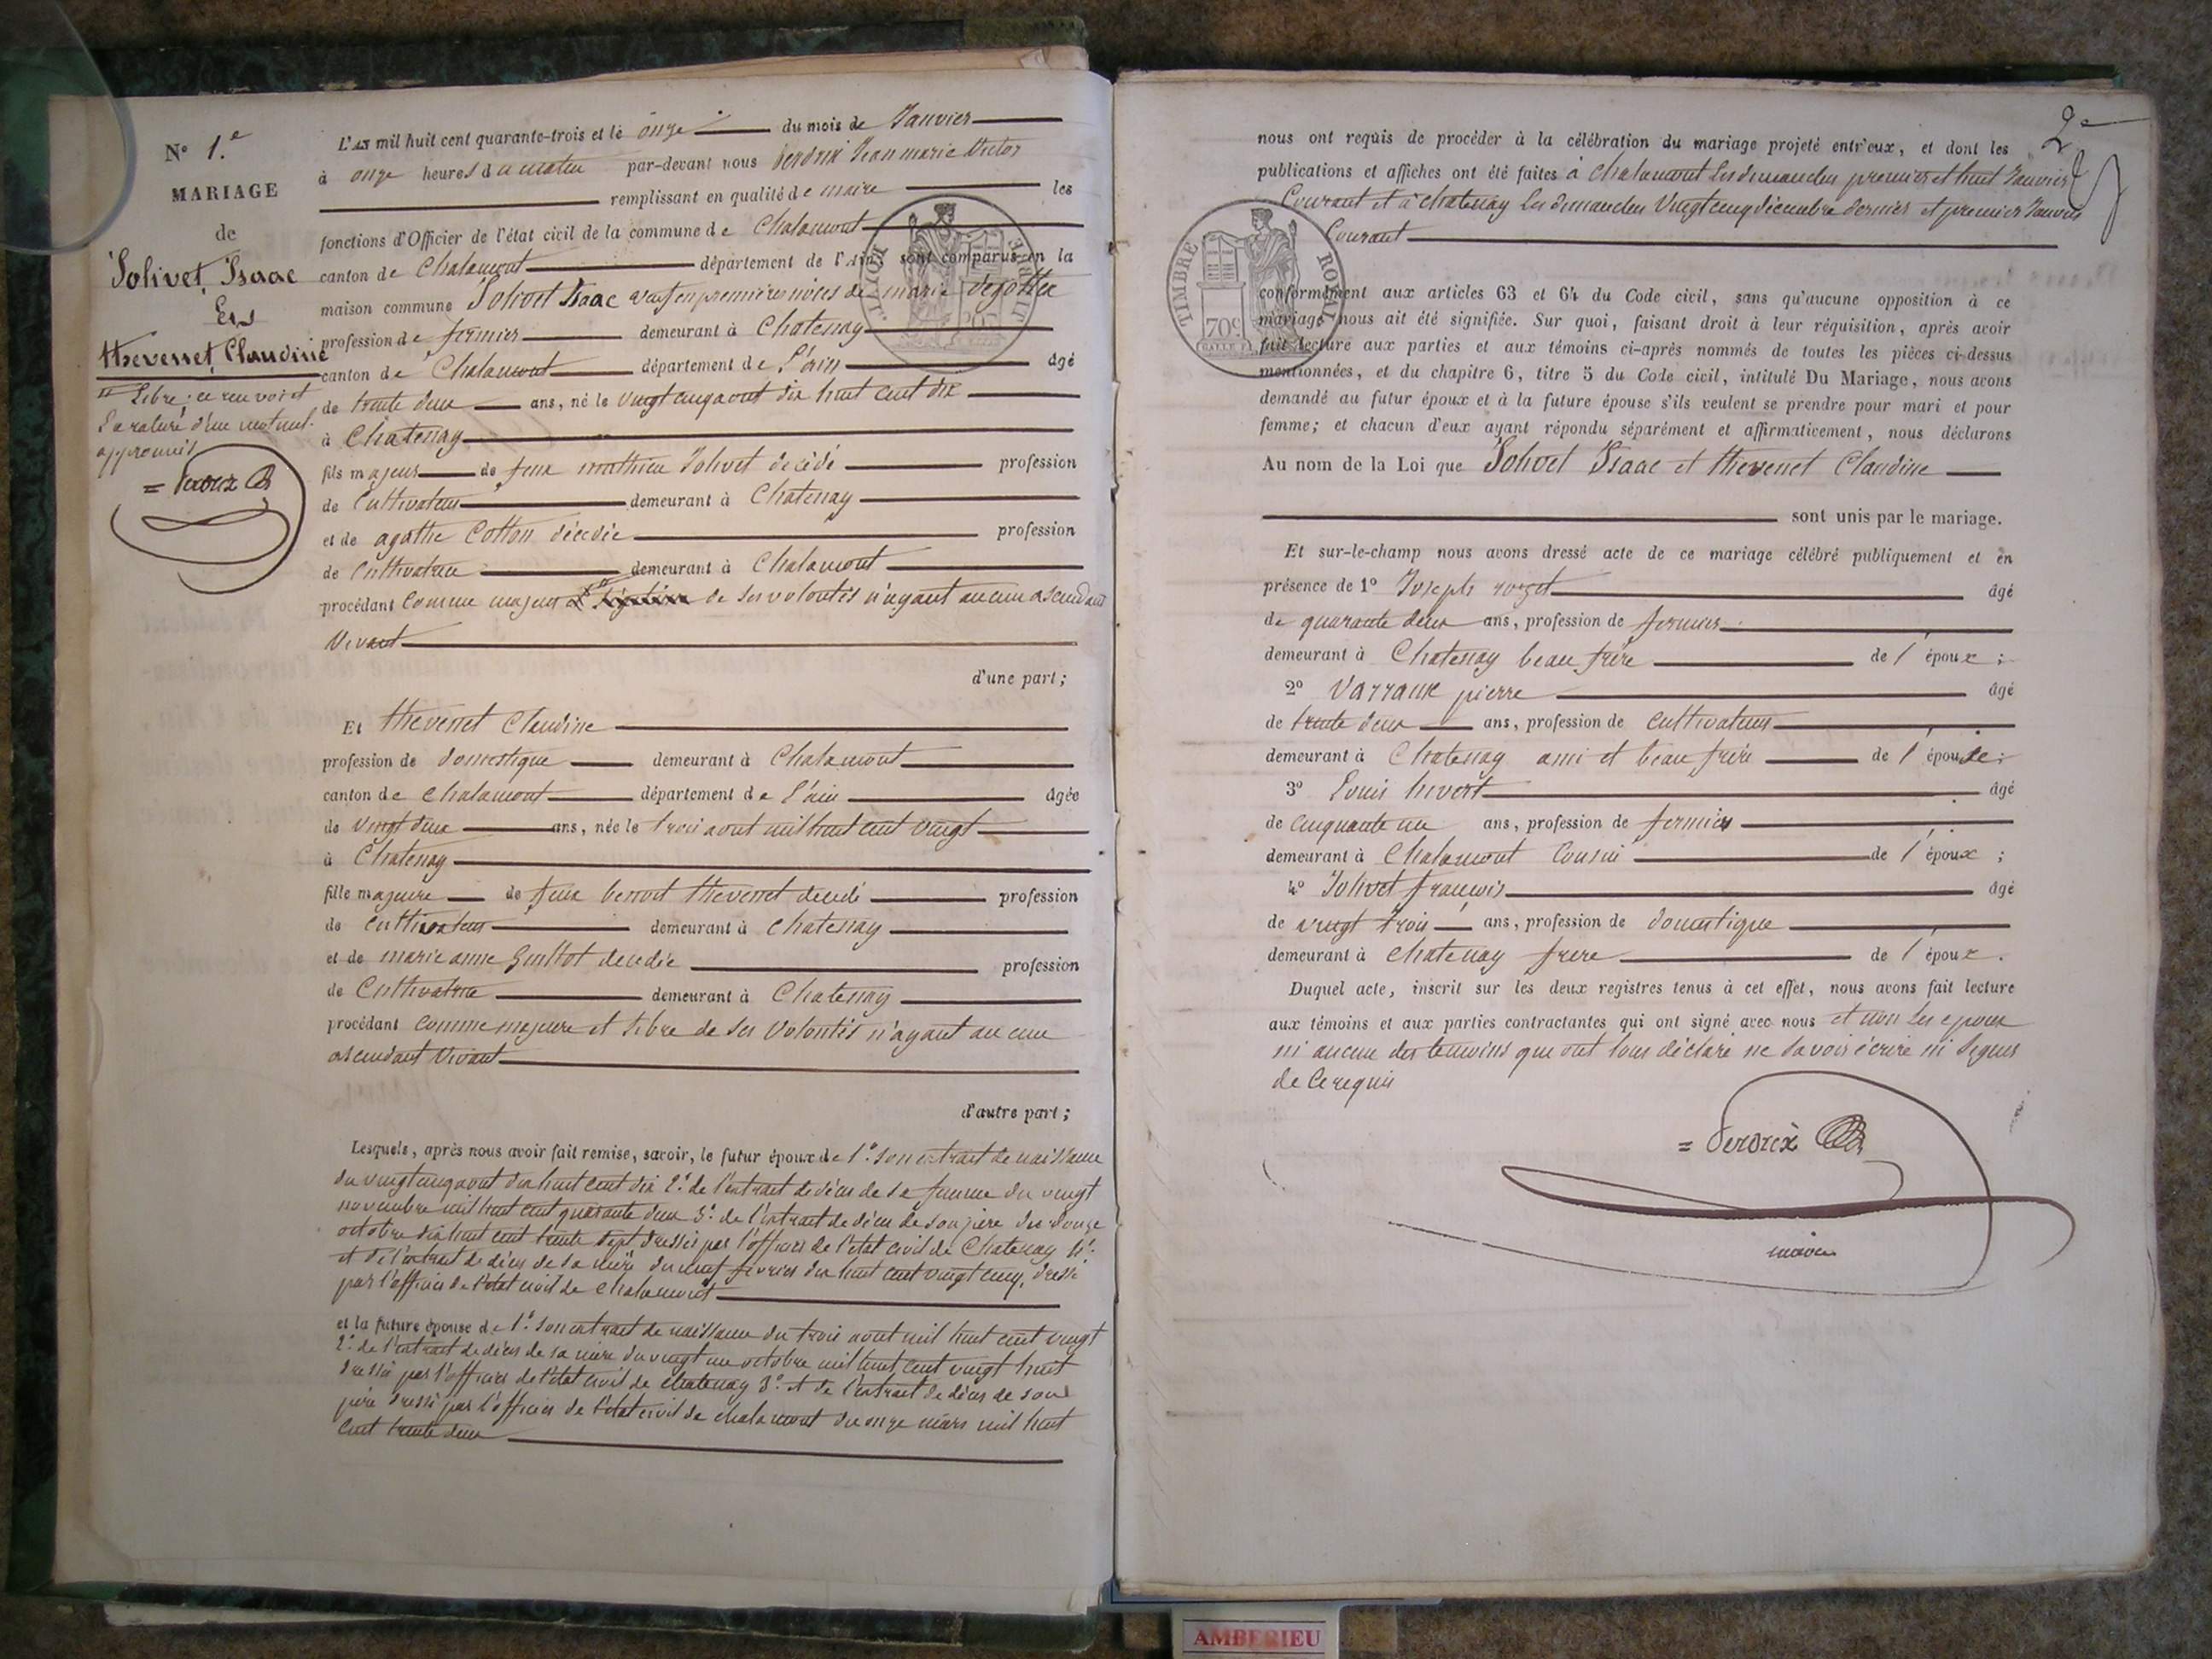 N° 1.e
MARIAGE
de
Jolivet, Isaac
Et
thevenet, Claudine
Libre; ce renvoi et
la rature d'un mot nul
approuvés
= Verdrix
L'AN mil huit cent quarante-trois et le onze du mois de Janvier
à onze heures du matin par-devant nous Verdrix Jean marie Victor
remplissant en qualité de maire les
fonctions d'Officier de l'état civil de la commune de Chalamont
canton de Chalamont département de l'Ain, sont comparus en la
maison commune Jolivet Isaac veuf en premières nóces de marie
profession de fermier demeurant à Chatenay
canton de Chalamont département de l'ain âgé
de trente deux ans, né le vingt cinq aout dix huit cent dix
à Chatenay
fils majeur de feux mathieu Jolivet décédé profession
de Cultivateur demeurant à Chatenay
et de agathe Cotton décédée profession
de Cultivatrice demeurant à Chalamont
procédant comme majeur et de ses volontés n'ayant aucun ascendant
Vivant
d'une part;
Et thevenet Claudine
profession de domestique demeurant à Chalamont
canton de Chalamont département de l'ain âgée
de vingt deux ans, née le trois aout mil huit cent vingt
à Chatenay
fille majeure de feux benoit thevenet décédé profession
de Cultivateur demeurant à Chatenay
et de marie anne Guillot décédée profession
de Cultivatrice demeurant à Chatenay
procédant comme majeure et libre de ses Volontés n'ayant aucun
ascendant Vivant
d'autre part;
Lesquels, après nous avoir fait remise, savoir, le futur époux de 1.° son extrait de naissance
du vingt cinq aout dix huit cent dix 2.° de l'extrait de décès de sa femme du vingt
novembre mil huit cent quarante deux 3.° de l'extrait de décès de son père du douze
octobre dix huit cent trente sept dressés par l'officier de l'état civil de Chatenay 4.°
et de l'extrait de décès de sa mère du neuf février dix huit cent vingt cinq, dressé
par l'officier de l'état civil de Chalamont
et la future épouse de 1.° son extrait de naissance du trois aout mil huit cent vingt
2.° de l'extrait de décès de sa mère du vingt un octobre mil huit cent vingt huit
dressés par l'officier de l'état civil de chatenay 3.° et de l'extrait de décès de son
père dressé par l'officier de l'état civil de chalamont du onze mars mil huit
cent trente deux
2e
nous ont requis de procéder à la célébration du mariage projeté entr'eux, et dont les
publications et affiches ont été faites à Chalamont les dimanches premier et huit Janvier
Courant et à chatenay les dimanches Vingt cinq décembre dernier et premier Janvier
Courant
TIMBRE ROYAL
70c
conformément aux articles 63 et 64 du Code civil, sans qu'aucune opposition à ce
mariage nous ait été signifiée. Sur quoi, faisant droit à leur réquisition, après avoir
fait lecture aux parties et aux témoins ci-après nommés de toutes les pièces ci-dessus
mentionnées, et du chapitre 6, titre 5 du Code civil, intitulé Du Mariage, nous avons
demandé au futur époux et à la future épouse s'ils veulent se prendre pour mari et pour
femme; et chacun d'eux ayant répondu séparément et affirmativement, nous déclarons
Au nom de la Loi que Jolivet Isaac et thevenet Claudine
sont unis par le mariage.
Et sur-le-champ nous avons dressé acte de ce mariage célébré publiquement et en
présence de 1° Joseph âgé
de quarante deux ans, profession de fermier
demeurant à Chatenay beau frère de l'époux;
2° Varraux pierre âgé
de trente deux ans, profession de cultivateur
demeurant à Chatenay ami et beau frère de l'épouse;
3° Louis hivert âgé
de cinquante un ans, profession de fermier
demeurant à Chalamont Cousin de l'époux;
4° Jolivet françois âgé
de vingt trois ans, profession de domestique
demeurant à chatenay frère de l'époux.
Duquel acte, inscrit sur les deux registres tenus à cet effet, nous avons fait lecture
aux témoins et aux parties contractantes qui ont signé avec nous et non les epoux
ni aucun des temoins qui ont tous déclaré ne savoir écrire ni signer
de ce requis
= Verdrix
maire
AMBERIEU